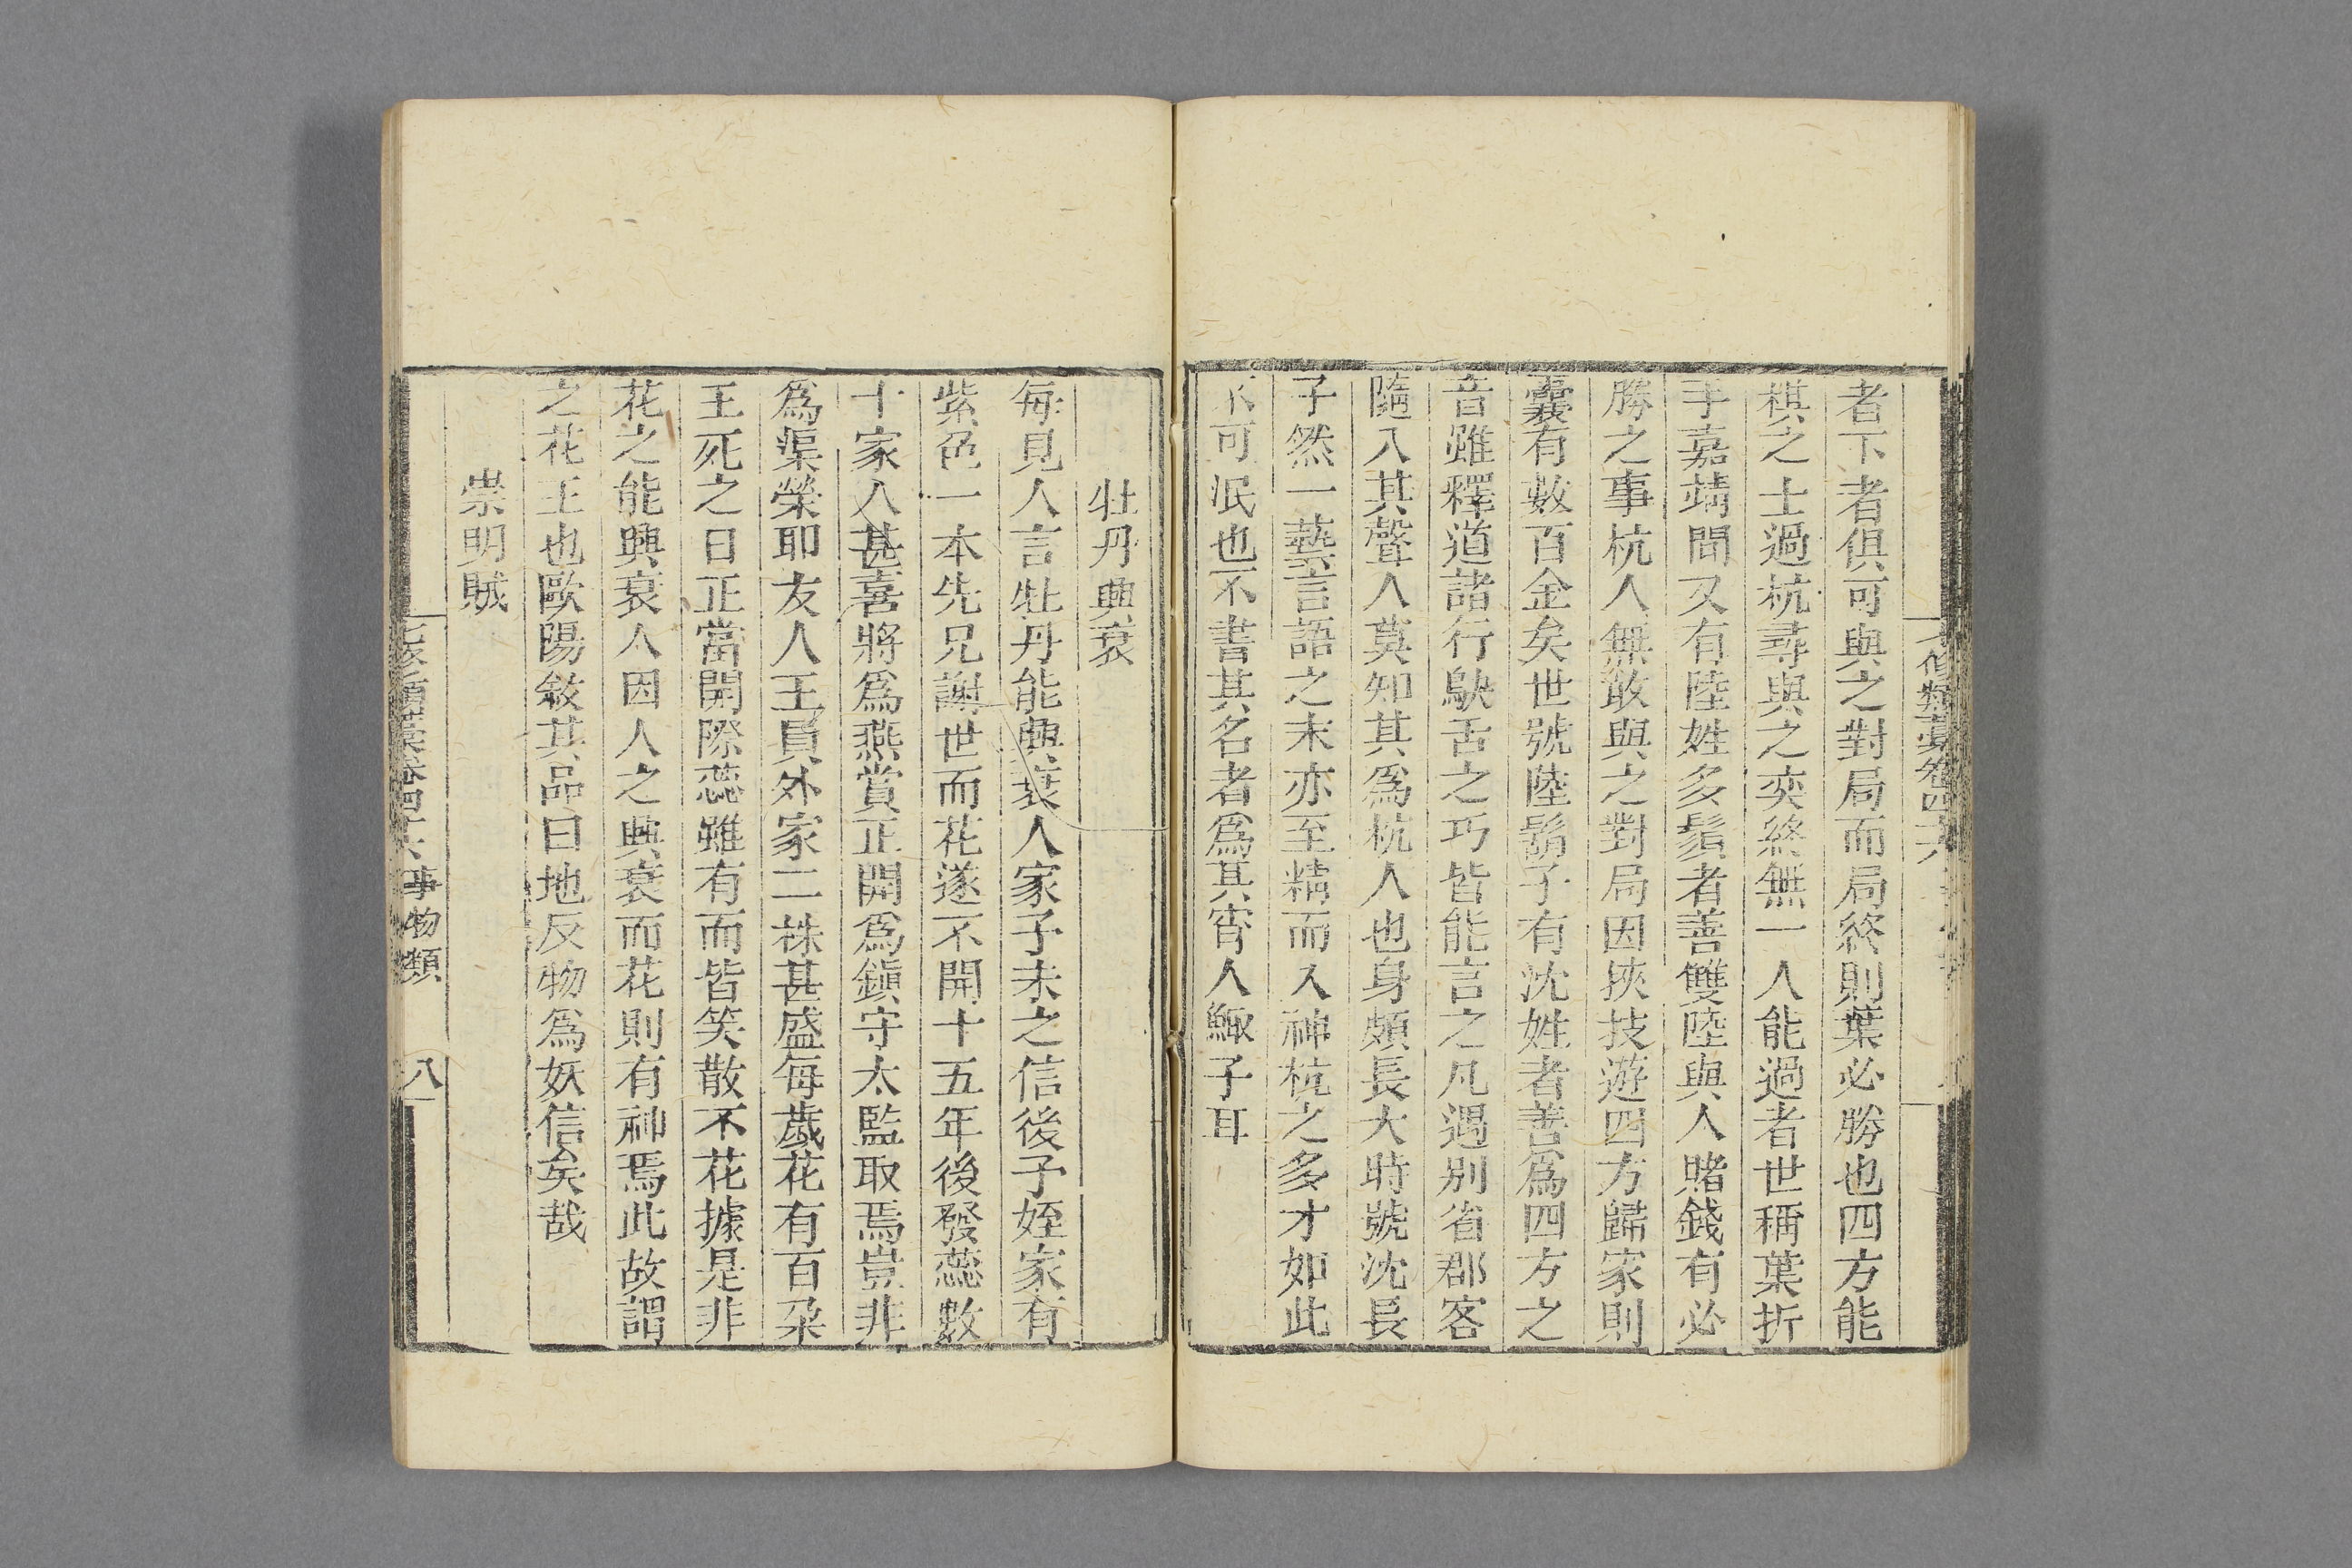 者下者俱可與之對局而局終則葉必勝也四方能
棋之士過杭尋與之奕終無一人能過者世稱葉折
手嘉靖間又有陸姓多鬚者善雙陸與人賭錢有必
勝之事杭人無敢與之對局因挾技遊四方歸家則
囊有數百金矣世號陸鬍子有沈姓者善爲四方之
音雖釋道諸行鴃舌之巧皆能言之凡遇別省郡客
隨入其聲人莫知其爲杭人也身頗長大時號沈長
子然一藝言語之末亦至精而入神杭之多才如此
不可泯也不書其名者爲其宵人鯫子耳
牡丹興衰
每見人言牡丹能興衰人家予未之信後予姪家有
紫色一本先兄謝世而花遂不開十五年後發蕊數
十家人甚喜將爲燕賞正開爲鎮守太監取焉豈非
爲渠榮耶友人王員外家二株甚盛每歲花有百朶
王死之日正當開際蕊雖有而皆笑散不花據是非
花之能興衰人因人之興衰而花則有神焉此故謂
之花王也歐陽敘其品曰地反物爲妖信矣哉
崇明賊
七修類藁卷四十六 事物類 八